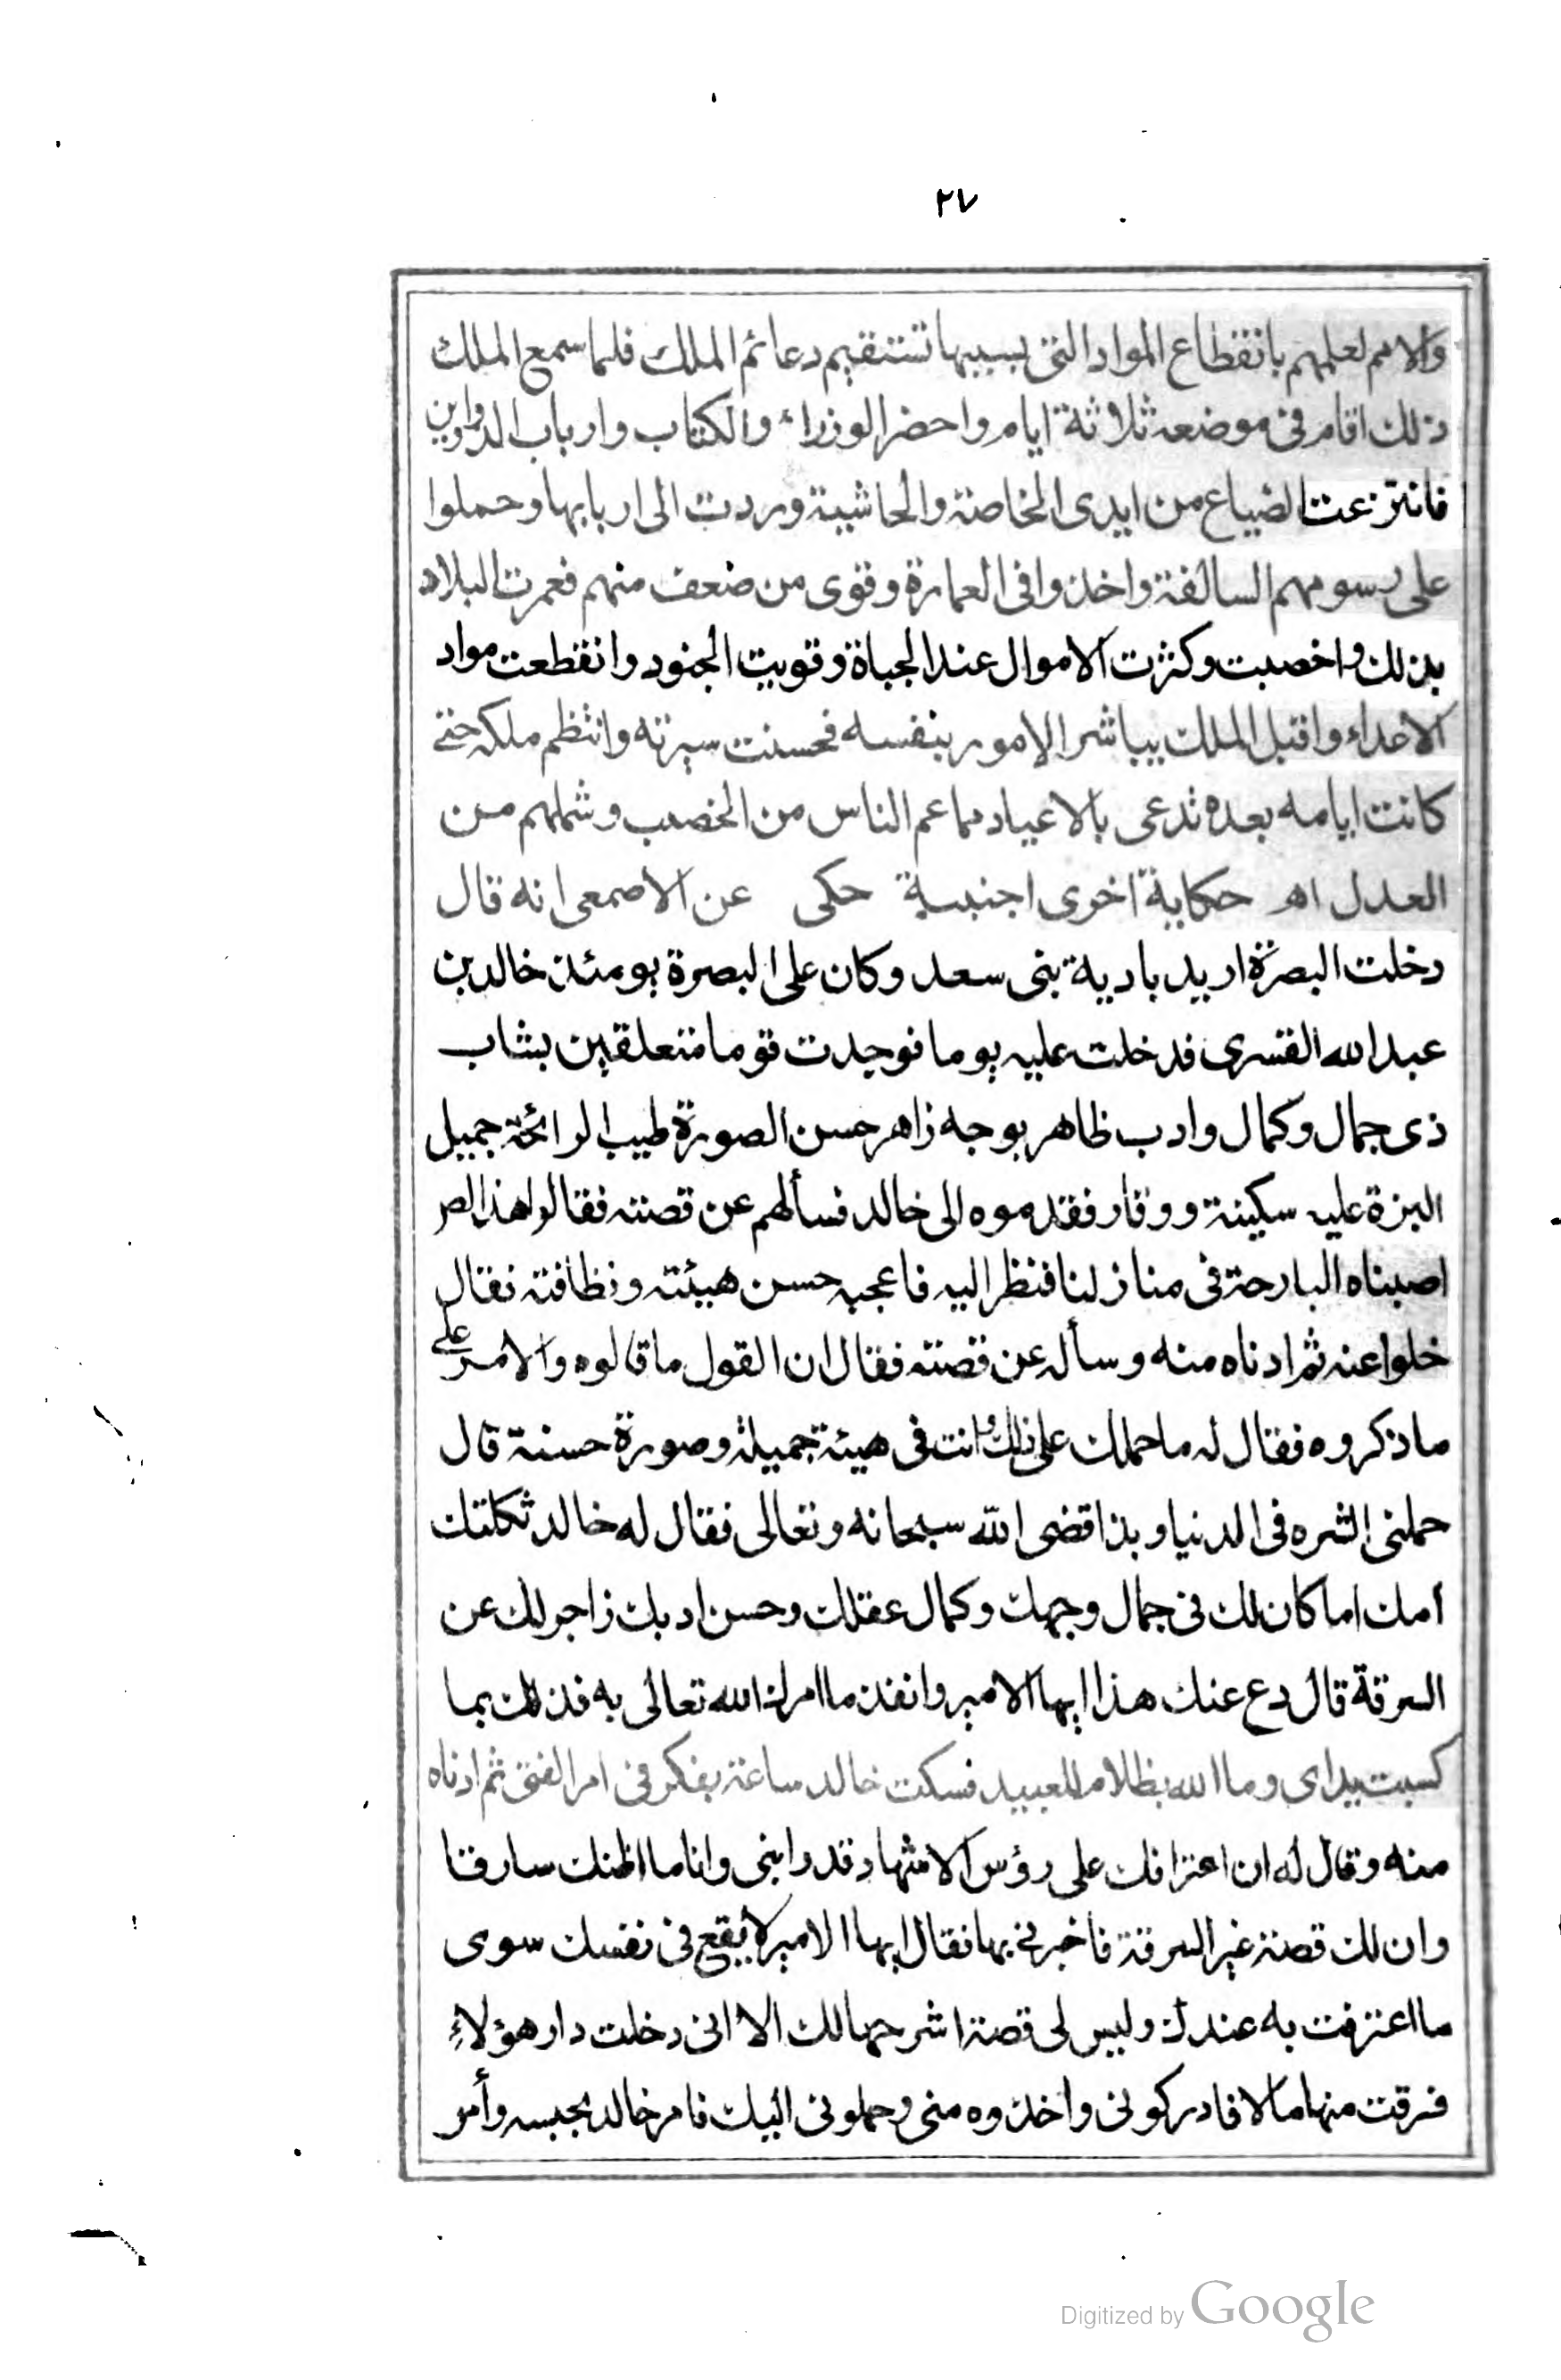 ٢٧
والامم لعلمهم بانقطاع المواد التى بسببها تستقيم دعائم الملك فلما سمع الملك
ذلك اقام فى موضعه ثلاثة ايام واحضر الوزراء والكتاب وارباب الدواوين
فانتزعت الضياع من ايدى الخاصة والحاشية وردت الى اربابها وحملوا
على رسومهم السالفة واخذوا فى العمارة وقوى من ضعف منهم فعمرت البلاد
بذلك واخصبت وكثرت الاموال عند الجباة وقويت الجنود وانقطعت مواد
الاعداء واقبل الملك يباشر الامور بنفسه فحسنت سيرته وانتظم ملكه حتى
كانت ايامه بعده تدعى بالاعياد مما عم الناس من الخصب وشملهم من
العدل اه حكاية اخرى اجنبية حكى عن الاصمعى انه قال
دخلت البصرة اريد بادية بنى سعد وكان على البصرة يومئذ خالد بن
عبد الله القسرى فدخلت عليه يوما فوجدت قوما متعلقين بشاب
ذى جمال وكمال وادب ظاهر بوجه زاهر حسن الصورة طيب الرائحة جميل
البزة عليه سكينة ووقار فقدموه الى خالد فسألهم عن قصته فقالوا هذا لص
اصبناه البارحة فى منازلنا فنظر اليه فاعجبه حسن هيئته ونظافته فقال
خلوا عنه ثم ادناه منه وسأله عن قصته فقال ان القول ما قالوه والامر على
ما ذكروه فقال له ما حملك على ذلك وانت فى هيئة جميلة وصورة حسنة قال
حملنى الشره فى الدنيا وبذا قضى الله سبحانه وتعالى فقال له خالد ثكلتك
امك اما كان لك فى جمال وجهك وكمال عقلك وحسن ادبك زاجر لك عن
السرقة قال دع عنك هذا ايها الامير وانفذ ما امرك الله تعالى به فذلك بما
كسبت يداى وما الله بظلام للعبيد فسكت خالد ساعة يفكر فى امر الفتى ثم ادناه
منه وقال له ان اعترافك على رؤس الاشهاد قد رابنى وانا ما اظنك سارقا
وان لك قصة غير السرقة فاخبرنى بها فقال ايها الامير لا يقع فى نفسك سوى
ما اعترفت به عندك وليس لى قصة اشرحها لك الا انى دخلت دار هؤلاء
فرقت منها مالا فادركونى واخذوه منى وحملونى اليك فامر خالد بحبسه وأمر
Digitized by Google